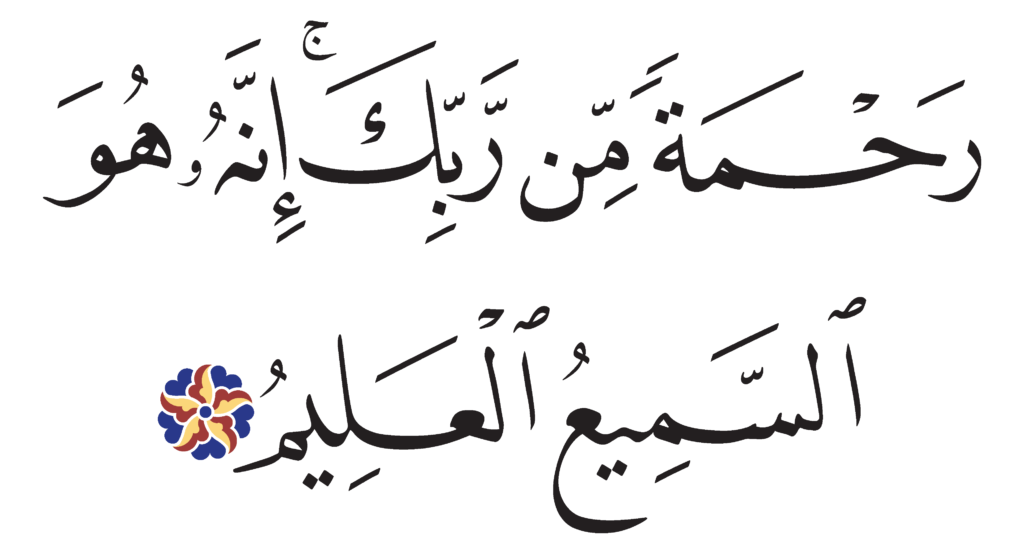 رَحْمَةً مِّن رَّبِّكَ ۚ إِنَّهُۥ هُوَ
ٱلسَّمِيعُ ٱلْعَلِيمُ